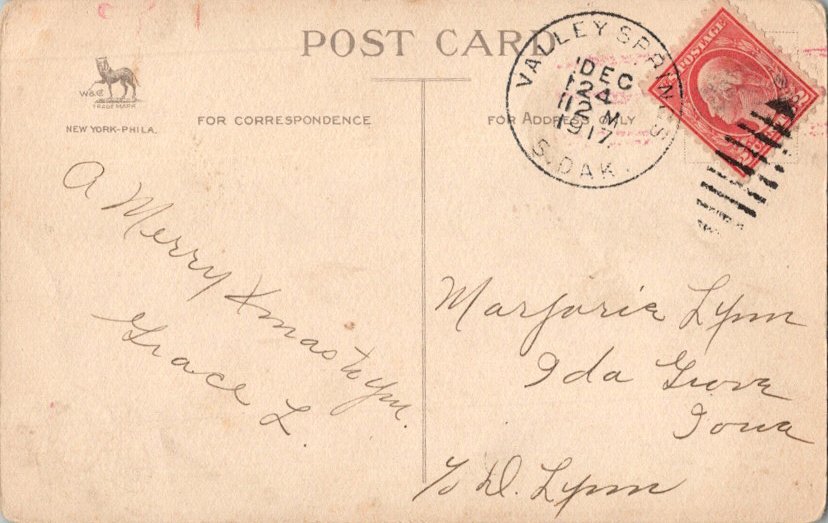 POST CARD
W&Co
TRADE MARK
NEW YORK-PHILA.
FOR CORRESPONDENCE
FOR ADDRESS ONLY
VALLEY SPRINGS
DEC
24
12 M
1917
S. DAK.
POSTAGE
2 CENTS 2
A Merry Xmas to you.
Grace L.
Marjorie Lynn
Ida Grove
Iowa
c/o D. Lynn